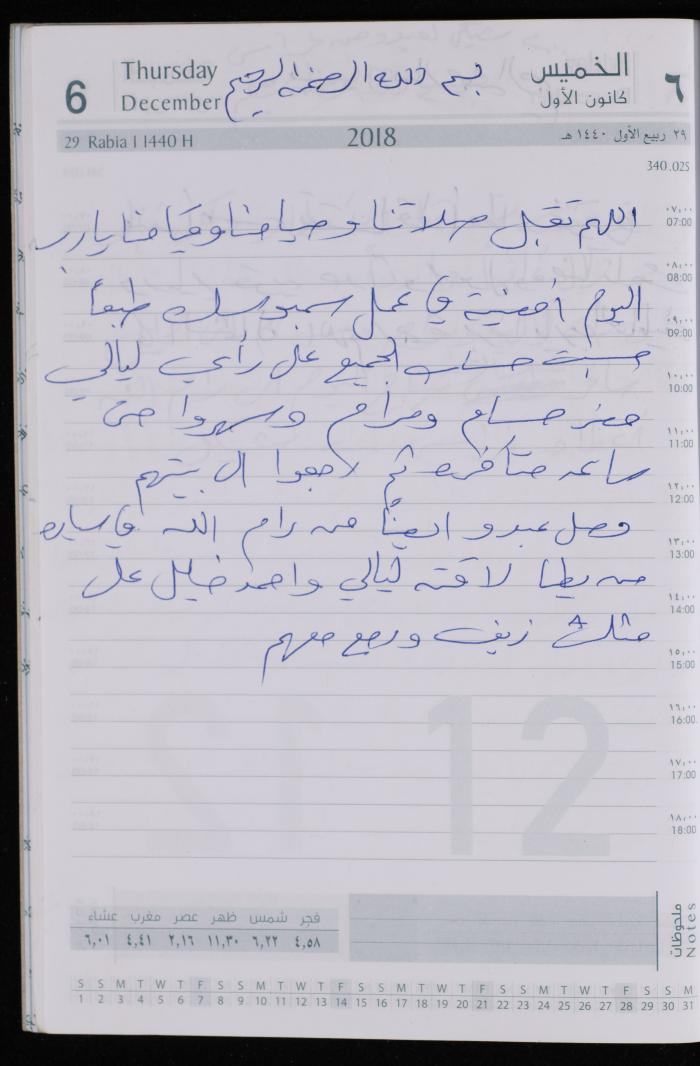 6
Thursday
December
بسم الله الرحمن الرحيم
الخميس
كانون الأول
٦
29 Rabia I 1440 H
2018
٢٩ ربيع الأول ١٤٤٠ هـ
340.025
اللهم تقبل صلاتنا وصيامنا وقيامنا يا رب
اليوم أمضيته في عمل سمبوسك طبعاً
حسبت حساب الجميع على رأي ليالي
حضر حسام ومرام وسهروا حتى
ساعة متأخرة ثم رجعوا الى بيتهم
وصل عبدو ايضاً من رام الله في سيارة
من يطا لاقته ليالي واحمد خليل على
مثلث زيف ورجع معهم
٠٧,٠٠
07:00
٠٨,٠٠
08:00
٠٩,٠٠
09:00
١٠,٠٠
10:00
١١,٠٠
11:00
١٢,٠٠
12:00
١٣,٠٠
13:00
١٤,٠٠
14:00
١٥,٠٠
15:00
١٦,٠٠
16:00
١٧,٠٠
17:00
١٨,٠٠
18:00
12
فجر شمس ظهر عصر مغرب عشاء
٤,٥٨ ٦,٢٢ ١١,٣٠ ٢,١٦ ٤,٤١ ٦,٠١
ملحوظات
Notes
S S M T W T F S S M T W T F S S M T W T F S S M T W T F S S M
1 2 3 4 5 6 7 8 9 10 11 12 13 14 15 16 17 18 19 20 21 22 23 24 25 26 27 28 29 30 31